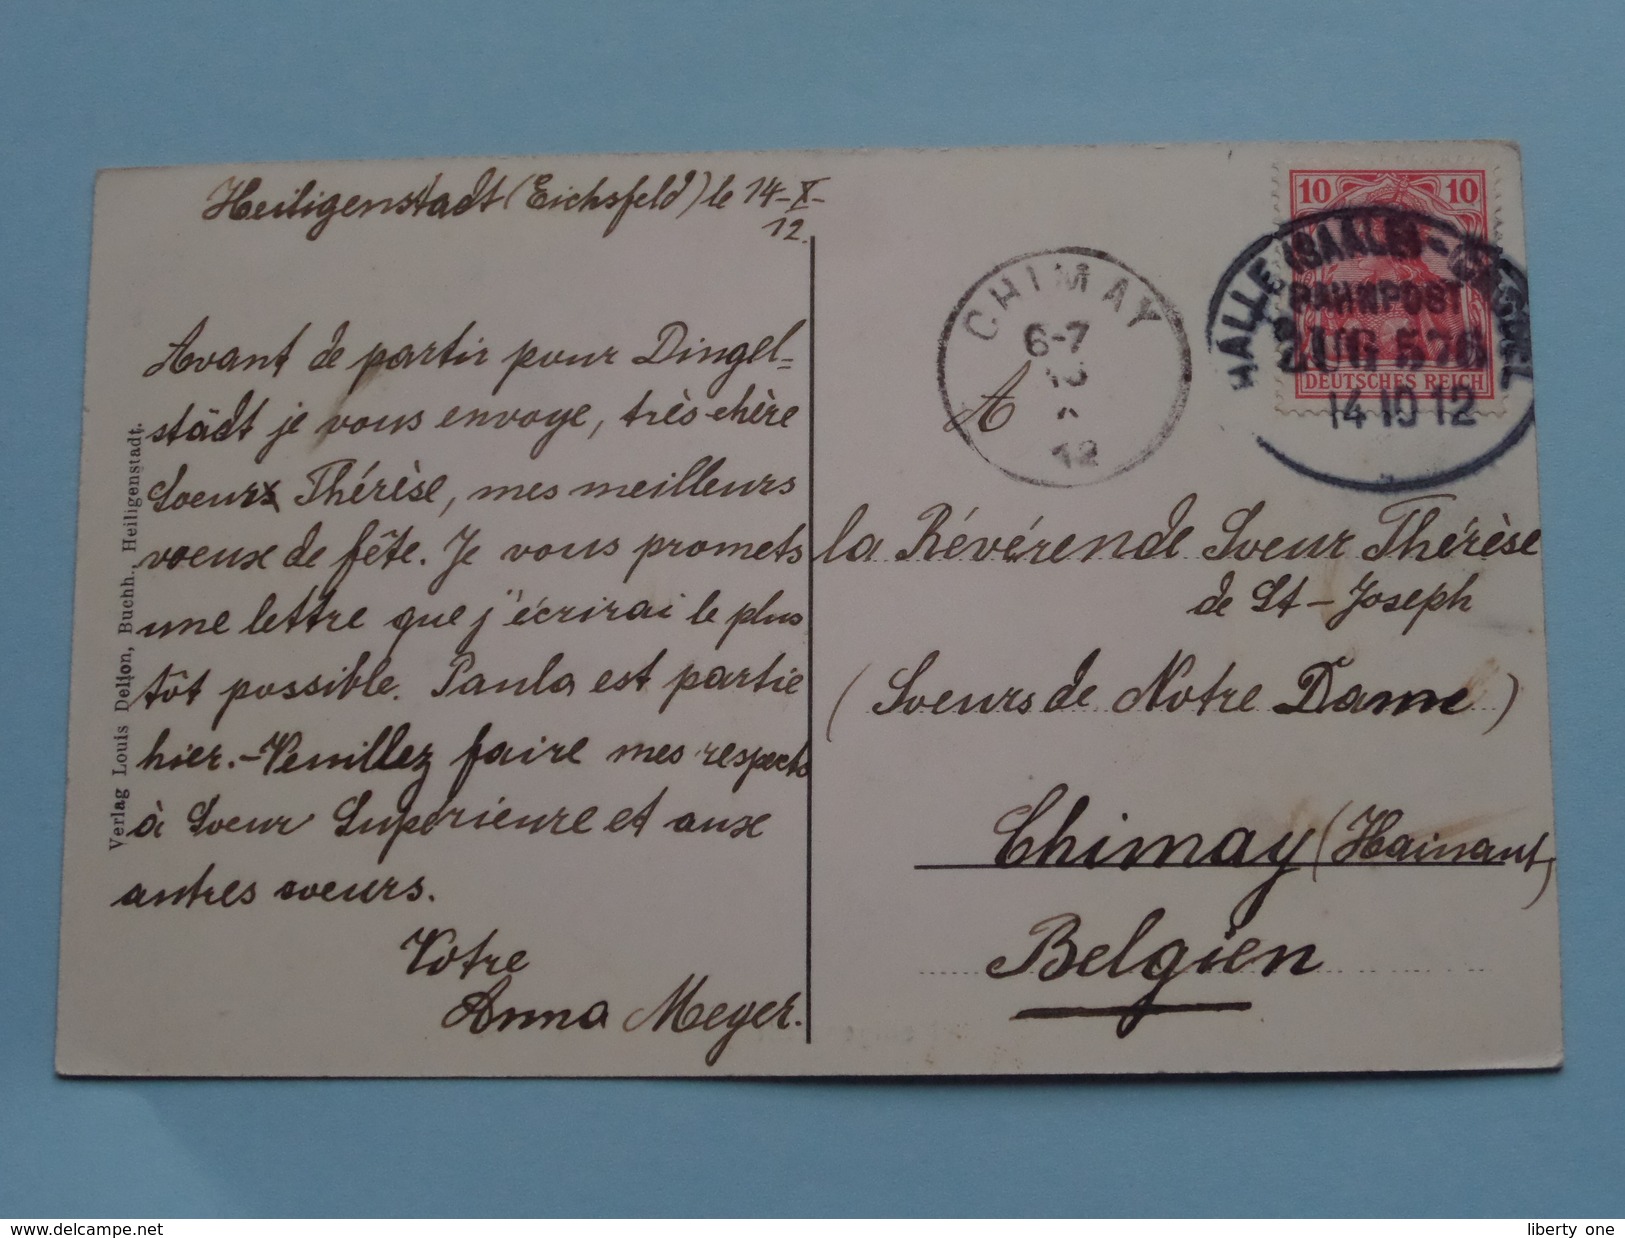 Heiligenstadt (Eichsfeld) le 14-X-
12.
Avant de partir pour Dingel-
städt je vous envoye, très chère
Soeur Thérèse, mes meilleurs
voeux de fête. Je vous promets
une lettre que j'écrirai le plus
tôt possible. Paula est partie
hier.-Veuillez faire mes respects
à Soeur Supérieure et aux
autres soeurs.
Votre
Anna Meyer.
Verlag Louis Delion, Buchh., Heiligenstadt.
CHIMAY
6-7
12
A
10 10
DEUTSCHES REICH
HALLE (SAALE)-
BAHNPOST
ZUG 576
14 10 12
la Révérende Soeur Thérèse
de St-Joseph
(Soeurs de Notre Dame)
Chimay (Hainaut)
Belgien
delcampe.net
liberty one